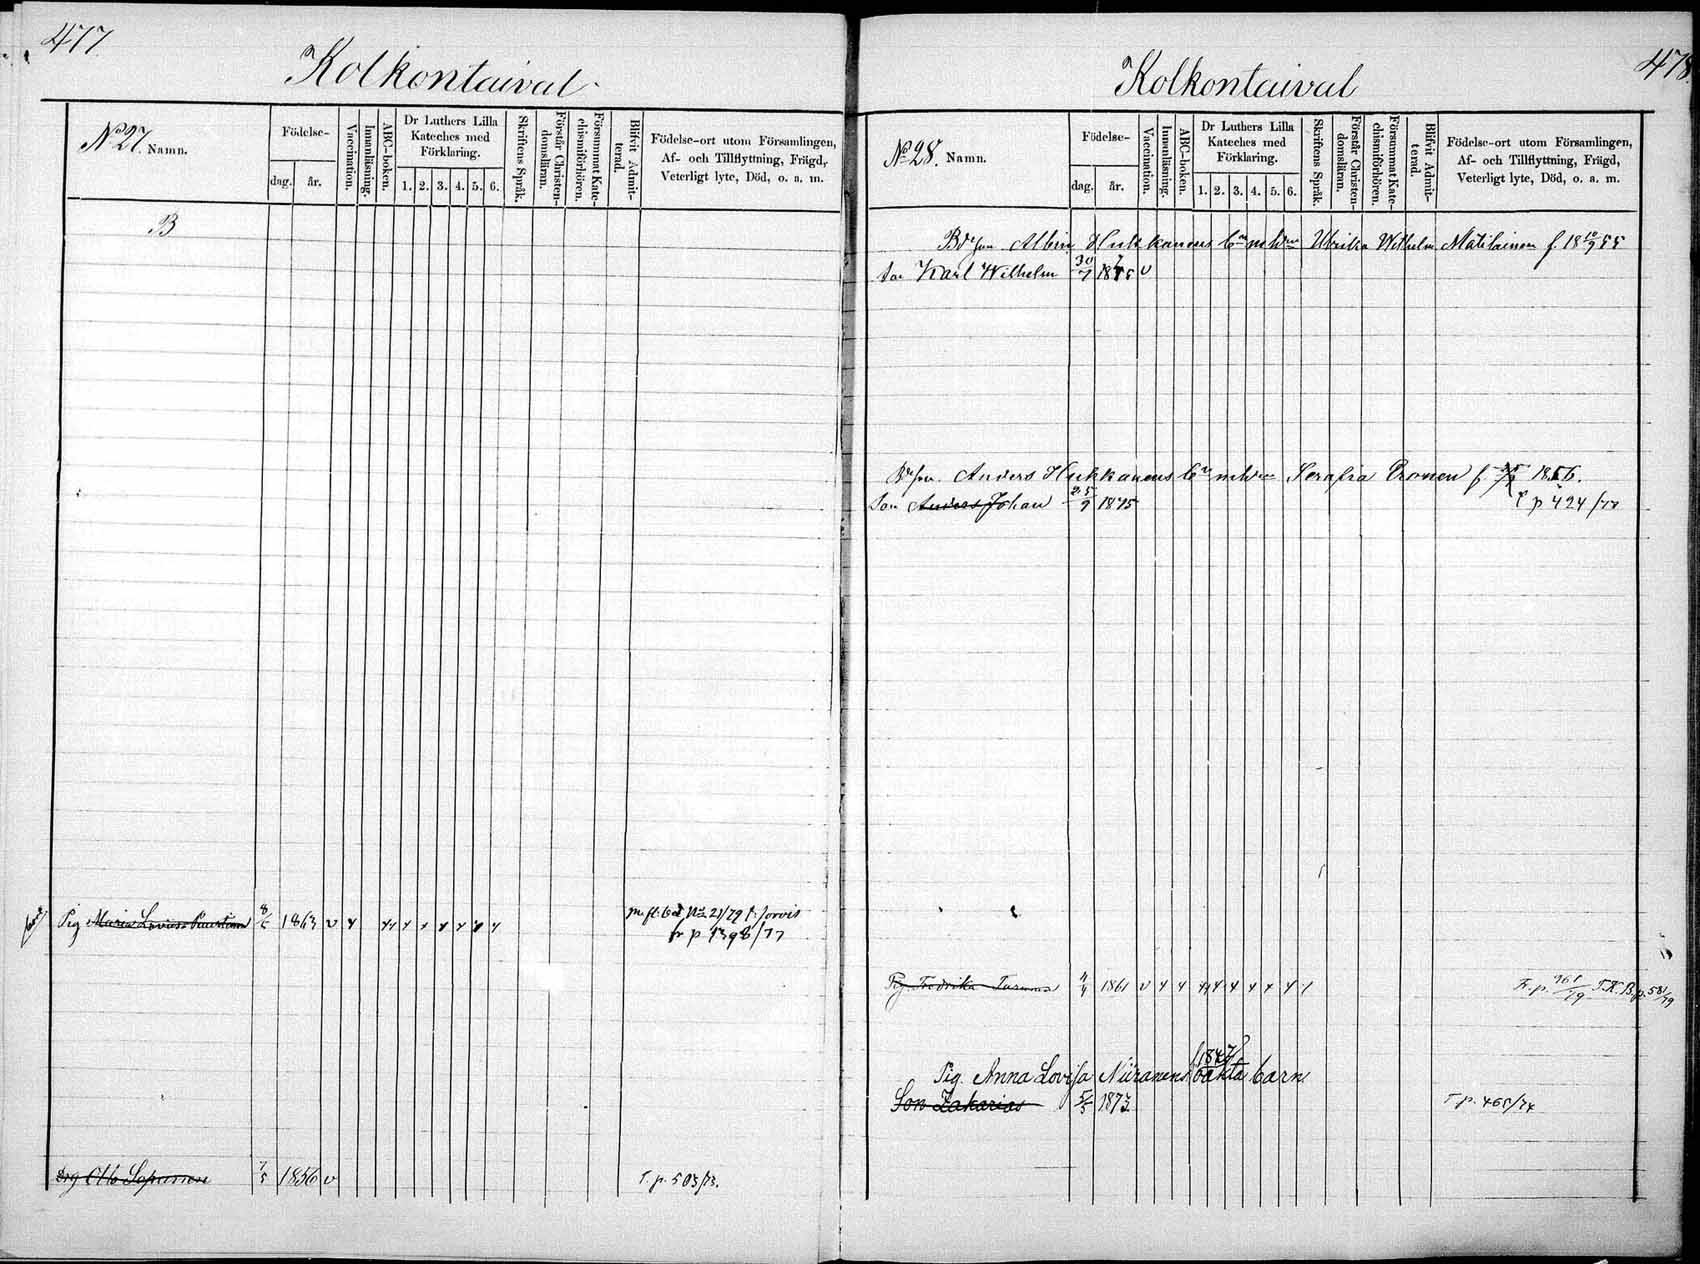 477.
Kolkontaival
No 27. Namn.
Födelse-
dag. år.
Vaccination.
Innanläsning.
ABC-boken.
Dr Luthers Lilla
Kateches med
Förklaring.
1. 2. 3. 4. 5. 6.
Skriftens Språk.
Förstår Christen-
domsläran.
Försummat Kate-
chismiförhören.
Blifvit Admit-
terad.
Födelse-ort utom Församlingen,
Af- och Tillflyttning, Frägd,
Veterligt lyte, Död, o. a. m.
B
Pig Maria Lovisa 8/6 1863 v
fr p 1398/77
Drg Otto 7/5 1856 v T. p. 503/73.
478.
Kolkontaival
No 28. Namn.
Födelse-
dag. år.
Vaccination.
Innanläsning.
ABC-boken.
Dr Luthers Lilla
Kateches med
Förklaring.
1. 2. 3. 4. 5. 6.
Skriftens Språk.
Förstår Christen-
domsläran.
Försummat Kate-
chismiförhören.
Blifvit Admit-
terad.
Födelse-ort utom Församlingen,
Af- och Tillflyttning, Frägd,
Veterligt lyte, Död, o. a. m.
Albin Hukkanens bn m hn Ulrika Wilhelm. Matilainen f. 18 10/9 55
Son Karl Wilhelm 30/7 1875 v
Anders Hukkanens bn m hn Serafia 1856.
Son Anders Johan 25/9 1875 p 424/77
Pig Fredrika 4/4 1861 v F. p. 961/79 T.K.B. p. 581/79
1847
Pig. Anna Lovisa Niiranens oäkta barn
Son Zakarias 5/5 1873. T p. 465/74